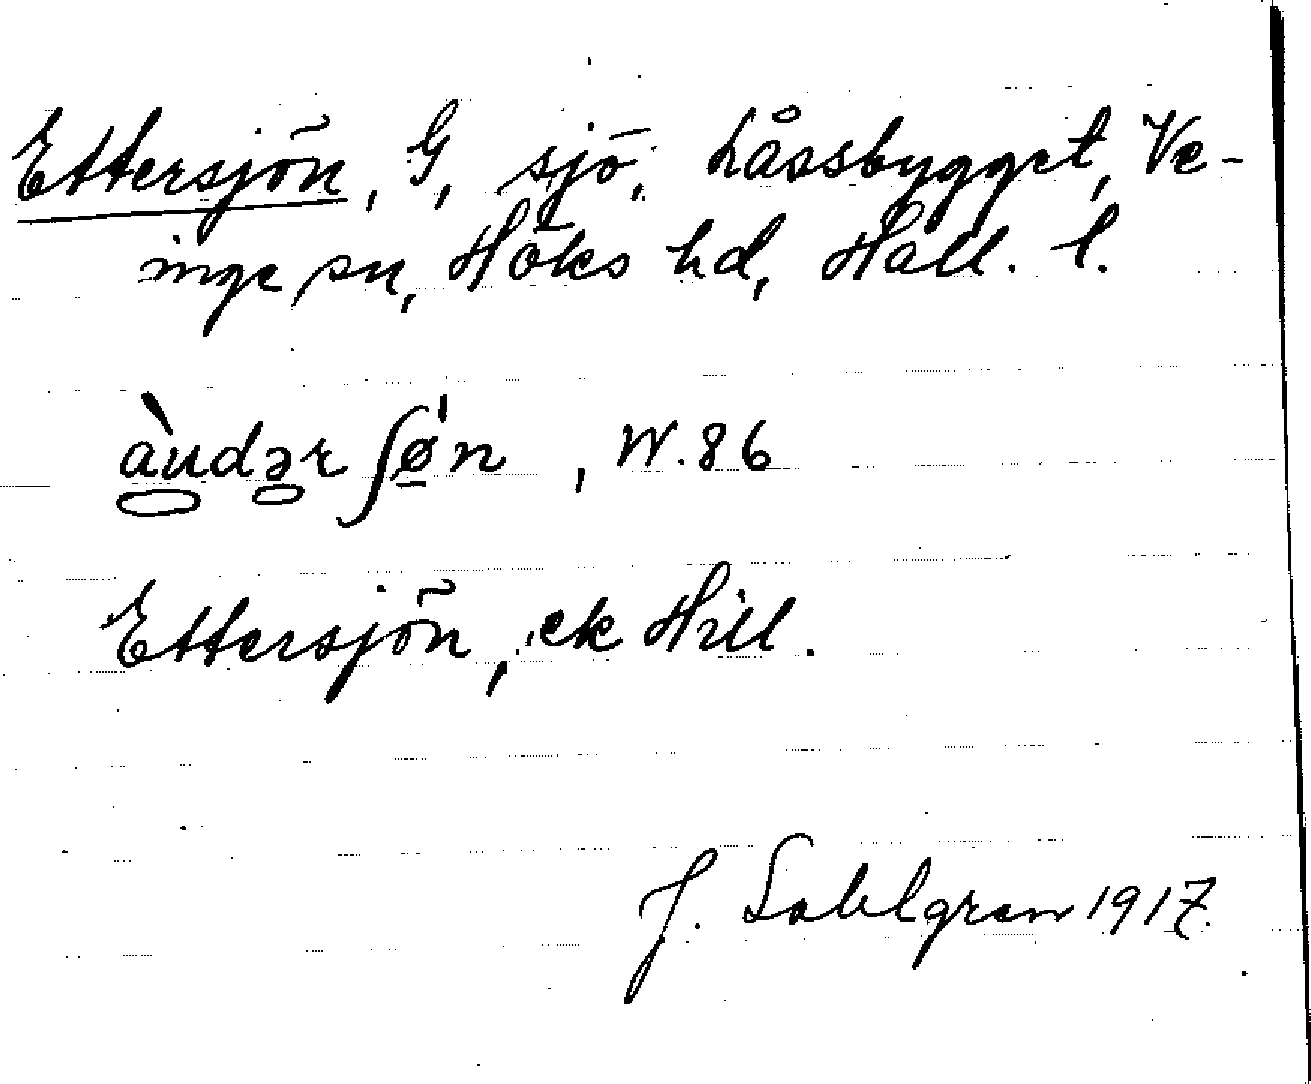 Ettersjön, G, sjö, Låssbygget, Ve-
inge sn, Höks hd, Hall. l.
àudər ʃø'n, W. 86
Ettersjön, ek Hill.
J. Sahlgren 1917.